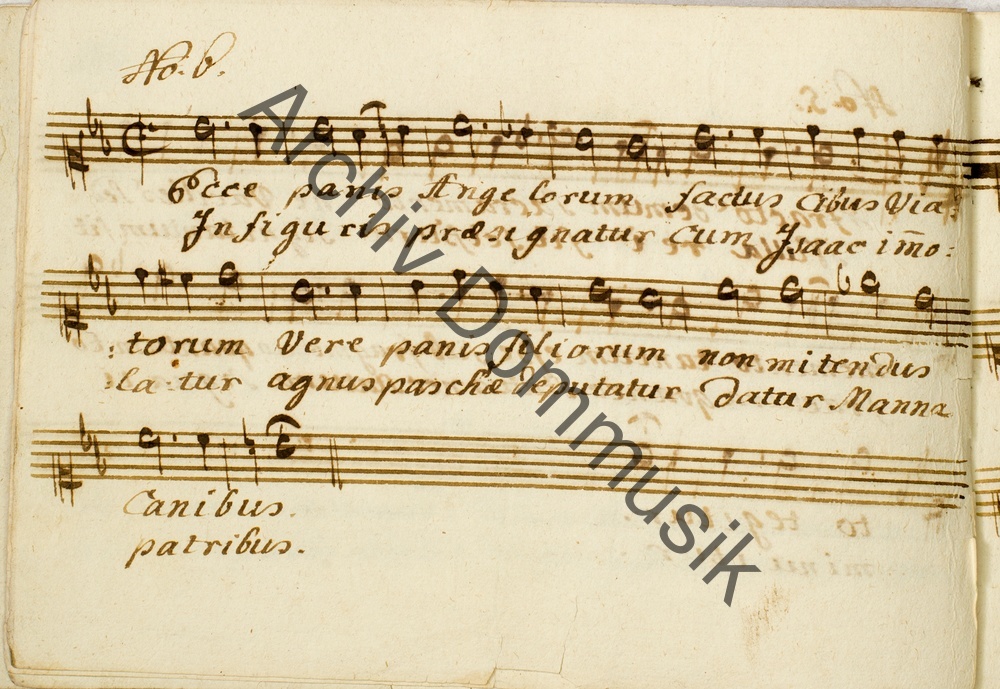 No. 6.
Ecce panis Ange lorum factus Cibus Via:
In figu ris præsignatur Cum Isaac im̄o:
:torum Vere panis filiorum non mitendus
:la tur agnus paschæ deputatur datur Manna
Canibus.
patribus.
Archiv Dommusik